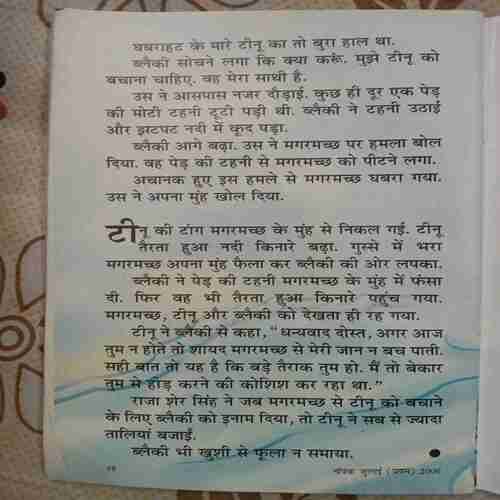 घबराहट के मारे टीनू का तो बुरा हाल था.
ब्लैकी सोचने लगा कि क्या करूं. मुझे टीनू को
बचाना चाहिए. वह मेरा साथी है.
उस ने आसपास नजर दौड़ाई. कुछ ही दूर एक पेड़
की मोटी टहनी टूटी पड़ी थी. ब्लैकी ने टहनी उठाई
और झटपट नदी में कूद पड़ा.
ब्लैकी आगे बढ़ा. उस ने मगरमच्छ पर हमला बोल
दिया. वह पेड़ की टहनी से मगरमच्छ को पीटने लगा.
अचानक हुए इस हमले से मगरमच्छ घबरा गया.
उस ने अपना मुंह खोल दिया.
टीनू की टांग मगरमच्छ के मुंह से निकल गई. टीनू
तैरता हुआ नदी किनारे बढ़ा. गुस्से में भरा
मगरमच्छ अपना मुंह फैला कर ब्लैकी की ओर लपका.
ब्लैकी ने पेड़ की टहनी मगरमच्छ के मुंह में फंसा
दी. फिर वह भी तैरता हुआ किनारे पहुंच गया.
मगरमच्छ, टीनू और ब्लैकी को देखता ही रह गया.
टीनू ने ब्लैकी से कहा, “धन्यवाद दोस्त, अगर आज
तुम न होते तो शायद मगरमच्छ से मेरी जान न बच पाती.
सही बात तो यह है कि बड़े तैराक तुम हो. मैं तो बेकार
तुम से होड़ करने की कोशिश कर रहा था.”
राजा शेर सिंह ने जब मगरमच्छ से टीनू को बचाने
के लिए ब्लैकी को इनाम दिया, तो टीनू ने सब से ज्यादा
तालियां बजाईं.
ब्लैकी भी खुशी से फूला न समाया.
चंपक जुलाई (प्रथम) 2006